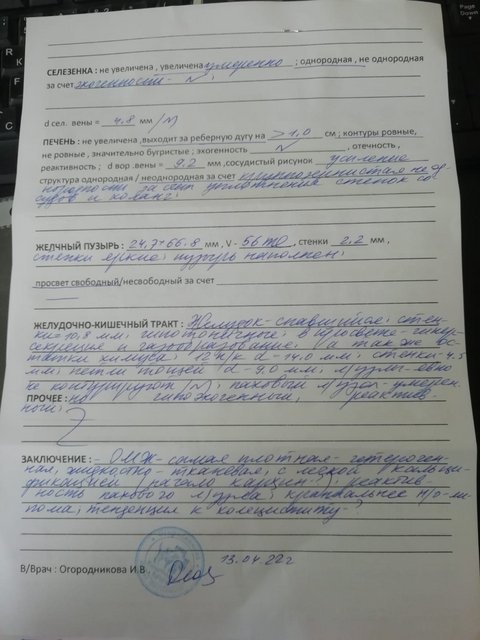 СЕЛЕЗЕНКА : не увеличена , увеличена умеренно ; однородная , не однородная
за счет эхогенность - N ;
d сел. вены = 4,8 мм /N/
ПЕЧЕНЬ : не увеличена ,выходит за реберную дугу на > 1,0 см ; контуры ровные,
не ровные , значительно бугристые ; эхогенность N , отечность ,
реактивность ; d вор .вены = 9,2 мм ,сосудистый рисунок усиление
структура однородная / неоднородная за счет крупнозернистая неод-
нородности за счет уплотнения стенок со
судов и холанг.
ЖЕЛЧНЫЙ ПУЗЫРЬ : 24,7*66,8 мм , V - 56 мл , стенки 2,2 мм ,
стенки яркие, пузырь наполнен.
просвет свободный/несвободный за счет
ЖЕЛУДОЧНО-КИШЕЧНЫЙ ТРАКТ : Желудок - спавшийся, стен-
ки = 10,8 мм, гипотоничные, в просвете - гипер-
секреция и газообразование, а так же ос-
татки химуса; 12 п/к d - 14,0 мм, стенки - 4,5
мм, петли тощей d - 9,0 мм, л/узлы - явно
не контурируют /N/; паховый л/узел - умерен-
ПРОЧЕЕ : но гипоэхогенный, реактив-
ный.
ЗАКЛЮЧЕНИЕ : - ОМЖ - самая плотная - гетероген-
ная, жидкостно - тканевая, с легкой кальци-
фикацией /начало карцин.?/, реактив-
ность пахового л/узла; краниальнее н/о - ли-
пома, тенденция к холециститу ?
13.04.22 г
В/Врач : Огородникова И.В .